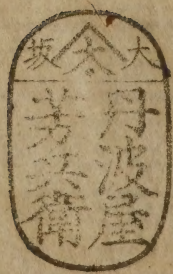 大坂
丹波屋
芳兵衛